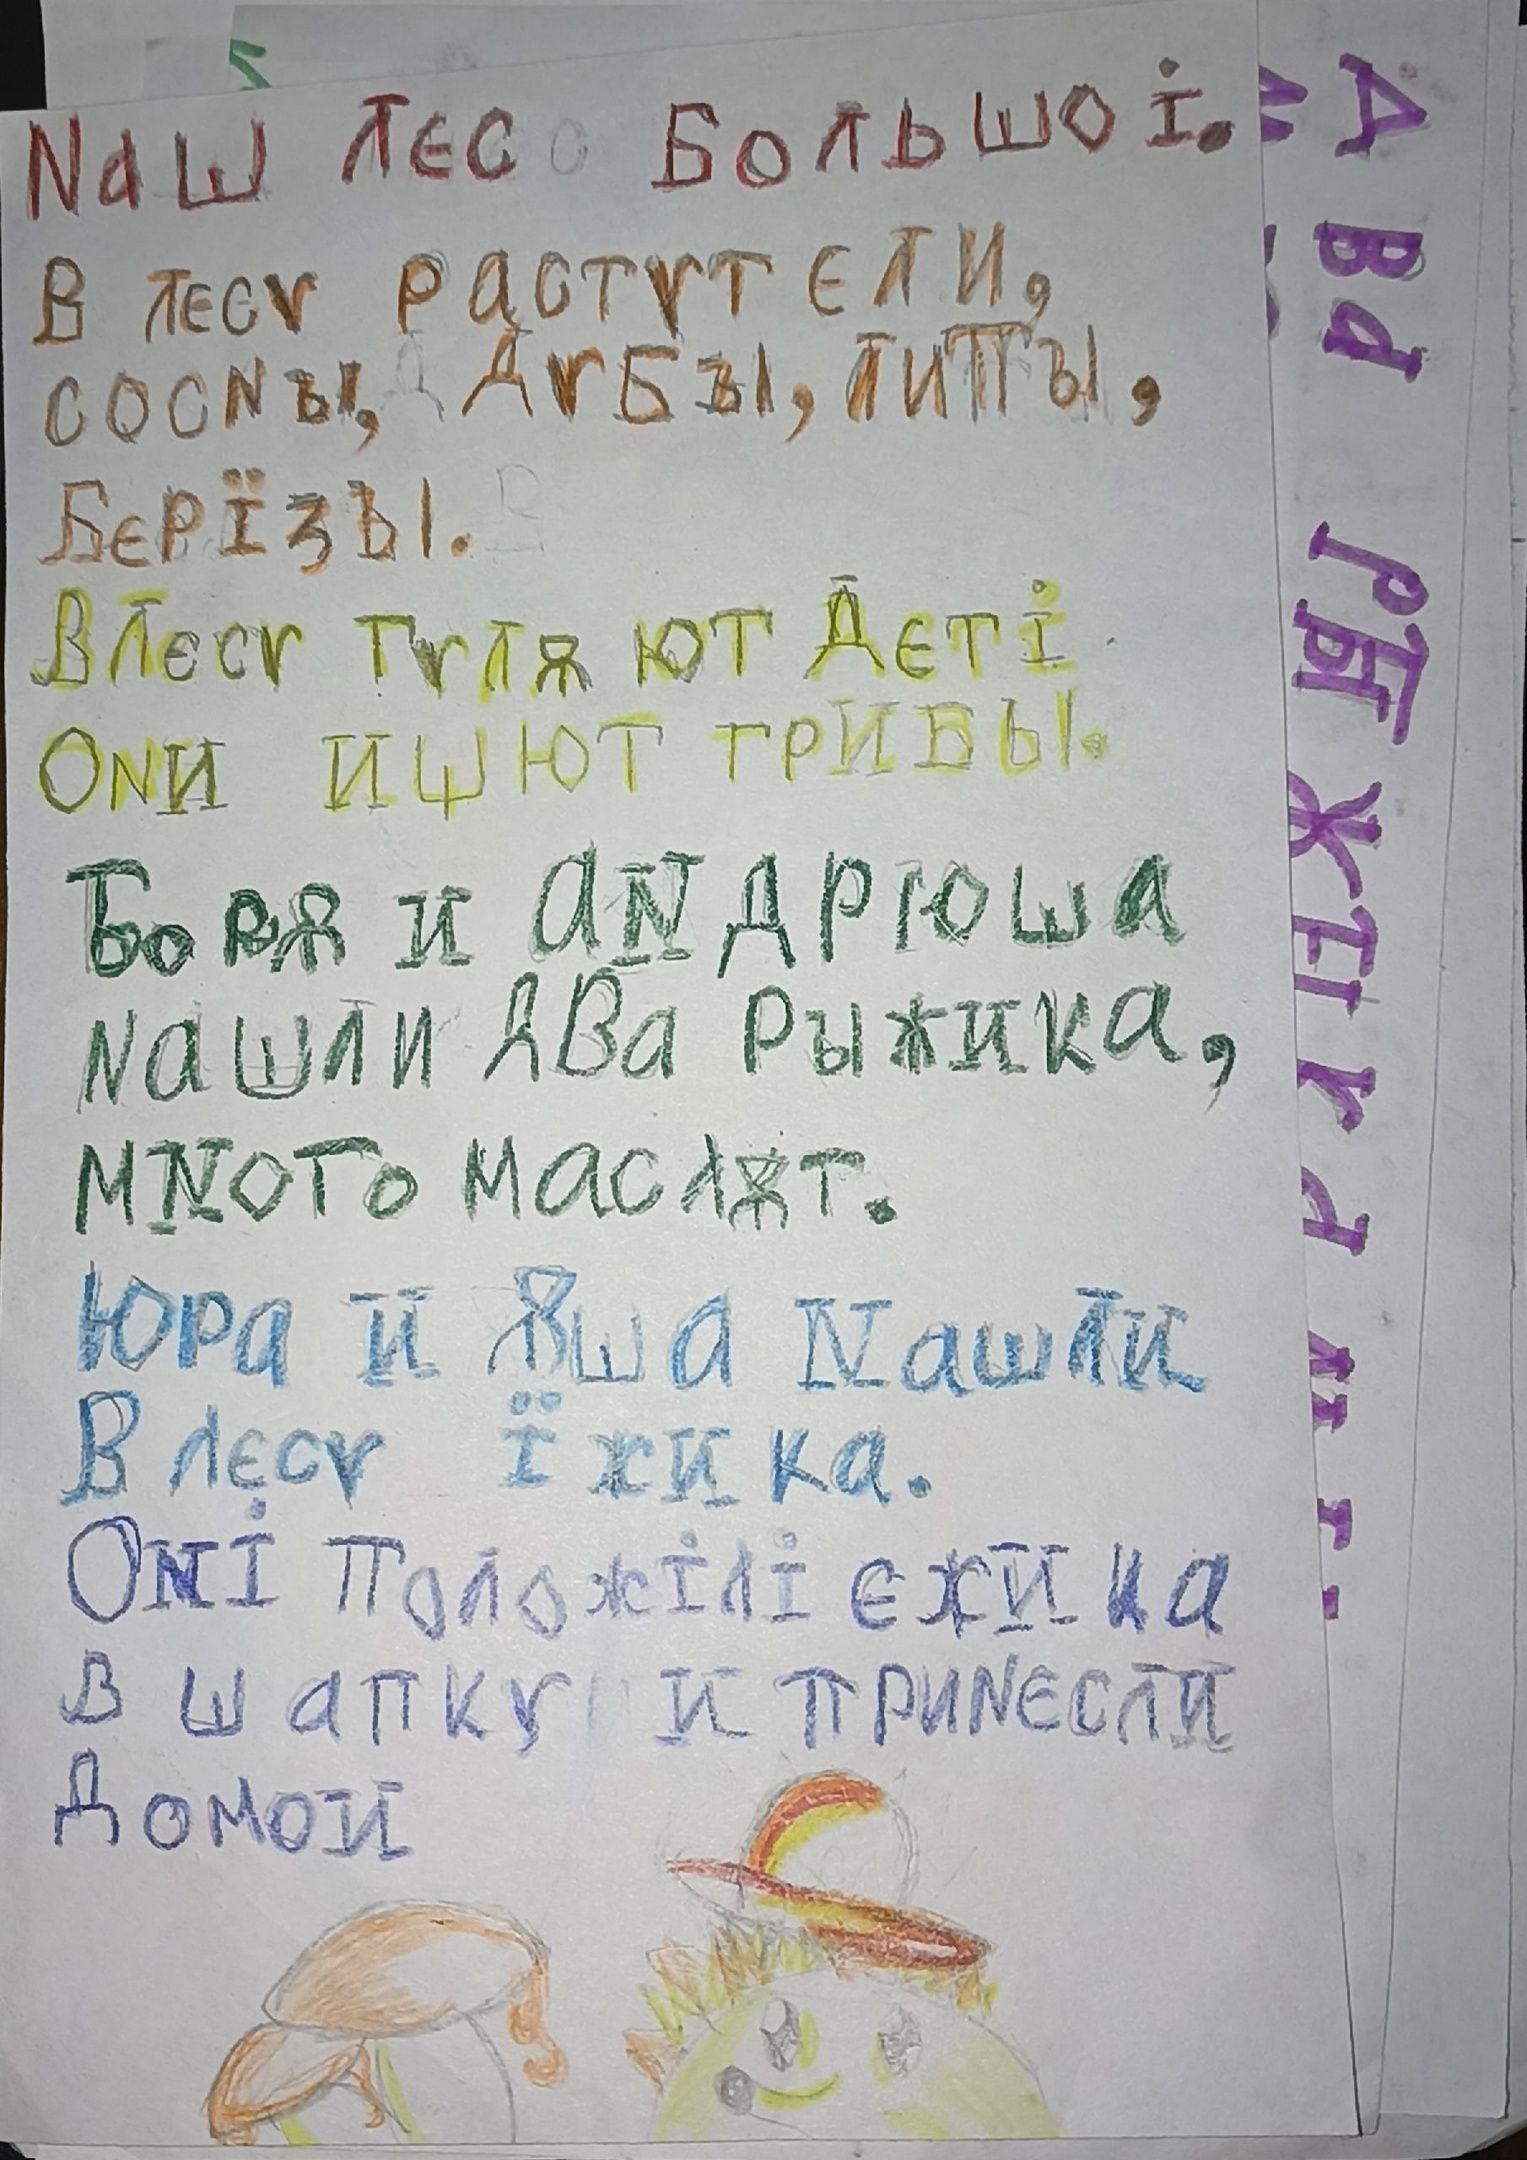 Nаш лєс Большоі.
В лєсу растут єли,
сосNы, дубы, липы,
Бєрїзы.
В лєсу гуляют дєті
ОNи ишют грибы.
Боря и аNдрюша
Nашли два рыжика,
мNого маслят.
Юра и Яша Nашли
В лєсу їжика.
ОNі положілі єжика
в шапку и приNєсли
домои
Два рыжика